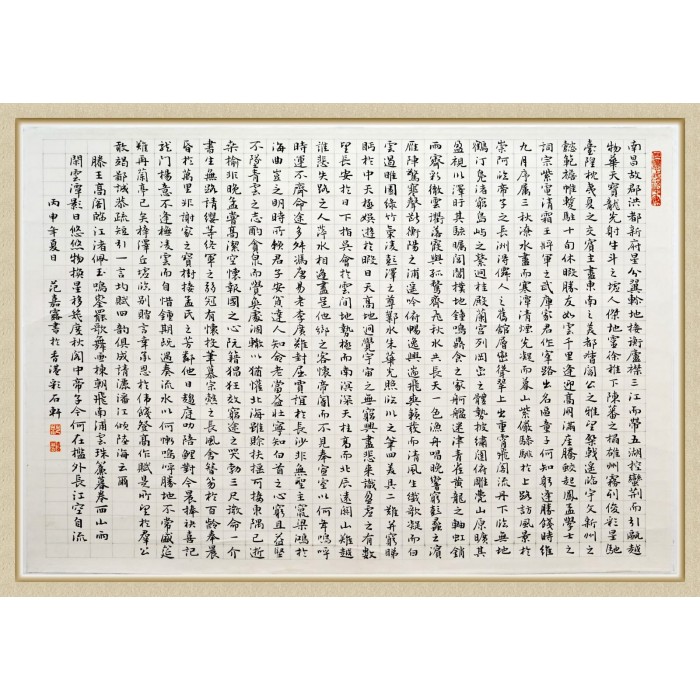 南昌故郡洪都新府星分翼軫地接衡廬襟三江而帶五湖控蠻荊而引甌越
物華天寶龍光射牛斗之墟人傑地靈徐孺下陳蕃之榻雄州霧列俊彩星馳
臺隍枕夷夏之交賓主盡東南之美都督閻公之雅望棨戟遙臨宇文新州之
懿範襜帷暫駐十旬休暇勝友如雲千里逢迎高朋滿座騰蛟起鳳孟學士之
詞宗紫電清霜王將軍之武庫家君作宰路出名區童子何知躬逢勝餞時維
九月序屬三秋潦水盡而寒潭清煙光凝而暮山紫儼驂騑於上路訪風景於
崇阿臨帝子之長洲得僊人之舊館層巒聳翠上出重霄飛閣流丹下臨無地
鶴汀鳧渚窮島嶼之縈迴桂殿蘭宮列岡巒之體勢披繡闥俯雕甍山原曠其
盈視川澤盱其駭矚閭閻撲地鐘鳴鼎食之家舸艦迷津青雀黃龍之軸虹銷
雨霽彩徹雲衢落霞與孤鶩齊飛秋水共長天一色漁舟唱晚響窮彭蠡之濱
雁陣驚寒聲斷衡陽之浦遙吟俯暢逸興遄飛爽籟發而清風生纖歌凝而白
雲遏睢園綠竹氣凌彭澤之樽鄴水朱華光照臨川之筆四美具二難并窮睇
眄於中天極娛遊於暇日天高地迥覺宇宙之無窮興盡悲來識盈虛之有數
望長安於日下指吳會於雲間地勢極而南溟深天柱高而北辰遠關山難越
誰悲失路之人萍水相逢盡是他鄉之客懷帝閽而不見奉宣室以何年嗚呼
時運不齊命途多舛馮唐易老李廣難封屈賈誼於長沙非無聖主竄梁鴻於
海曲豈乏明時所賴君子安貧達人知命老當益壯寧知白首之心窮且益堅
不墜青雲之志酌貪泉而覺爽處涸轍以猶懽北海雖賒扶搖可接東隅已逝
桑榆非晚孟嘗高潔空懷報國之心阮籍猖狂豈效窮途之哭勃三尺微命一介
書生無路請纓等終軍之弱冠有懷投筆慕宗愨之長風舍簪笏於百齡奉晨
昏於萬里非謝家之寶樹接孟氏之芳鄰他日趨庭叨陪鯉對今晨捧袂喜託
龍門楊意不逢撫凌雲而自惜鍾期既遇奏流水以何慚嗚呼勝地不常盛筵
難再蘭亭已矣梓澤丘墟臨別贈言幸承恩於偉餞登高作賦是所望於羣公
敢竭鄙誠恭疏短引一言均賦四韻俱成請灑潘江傾陸海云爾
滕王高閣臨江渚佩玉鳴鸞罷歌舞畫棟朝飛南浦雲珠簾暮卷西山雨
閒雲潭影日悠悠物換星移幾度秋閣中帝子今何在檻外長江空自流
丙申年夏日 范嘉露書於香港彩石軒